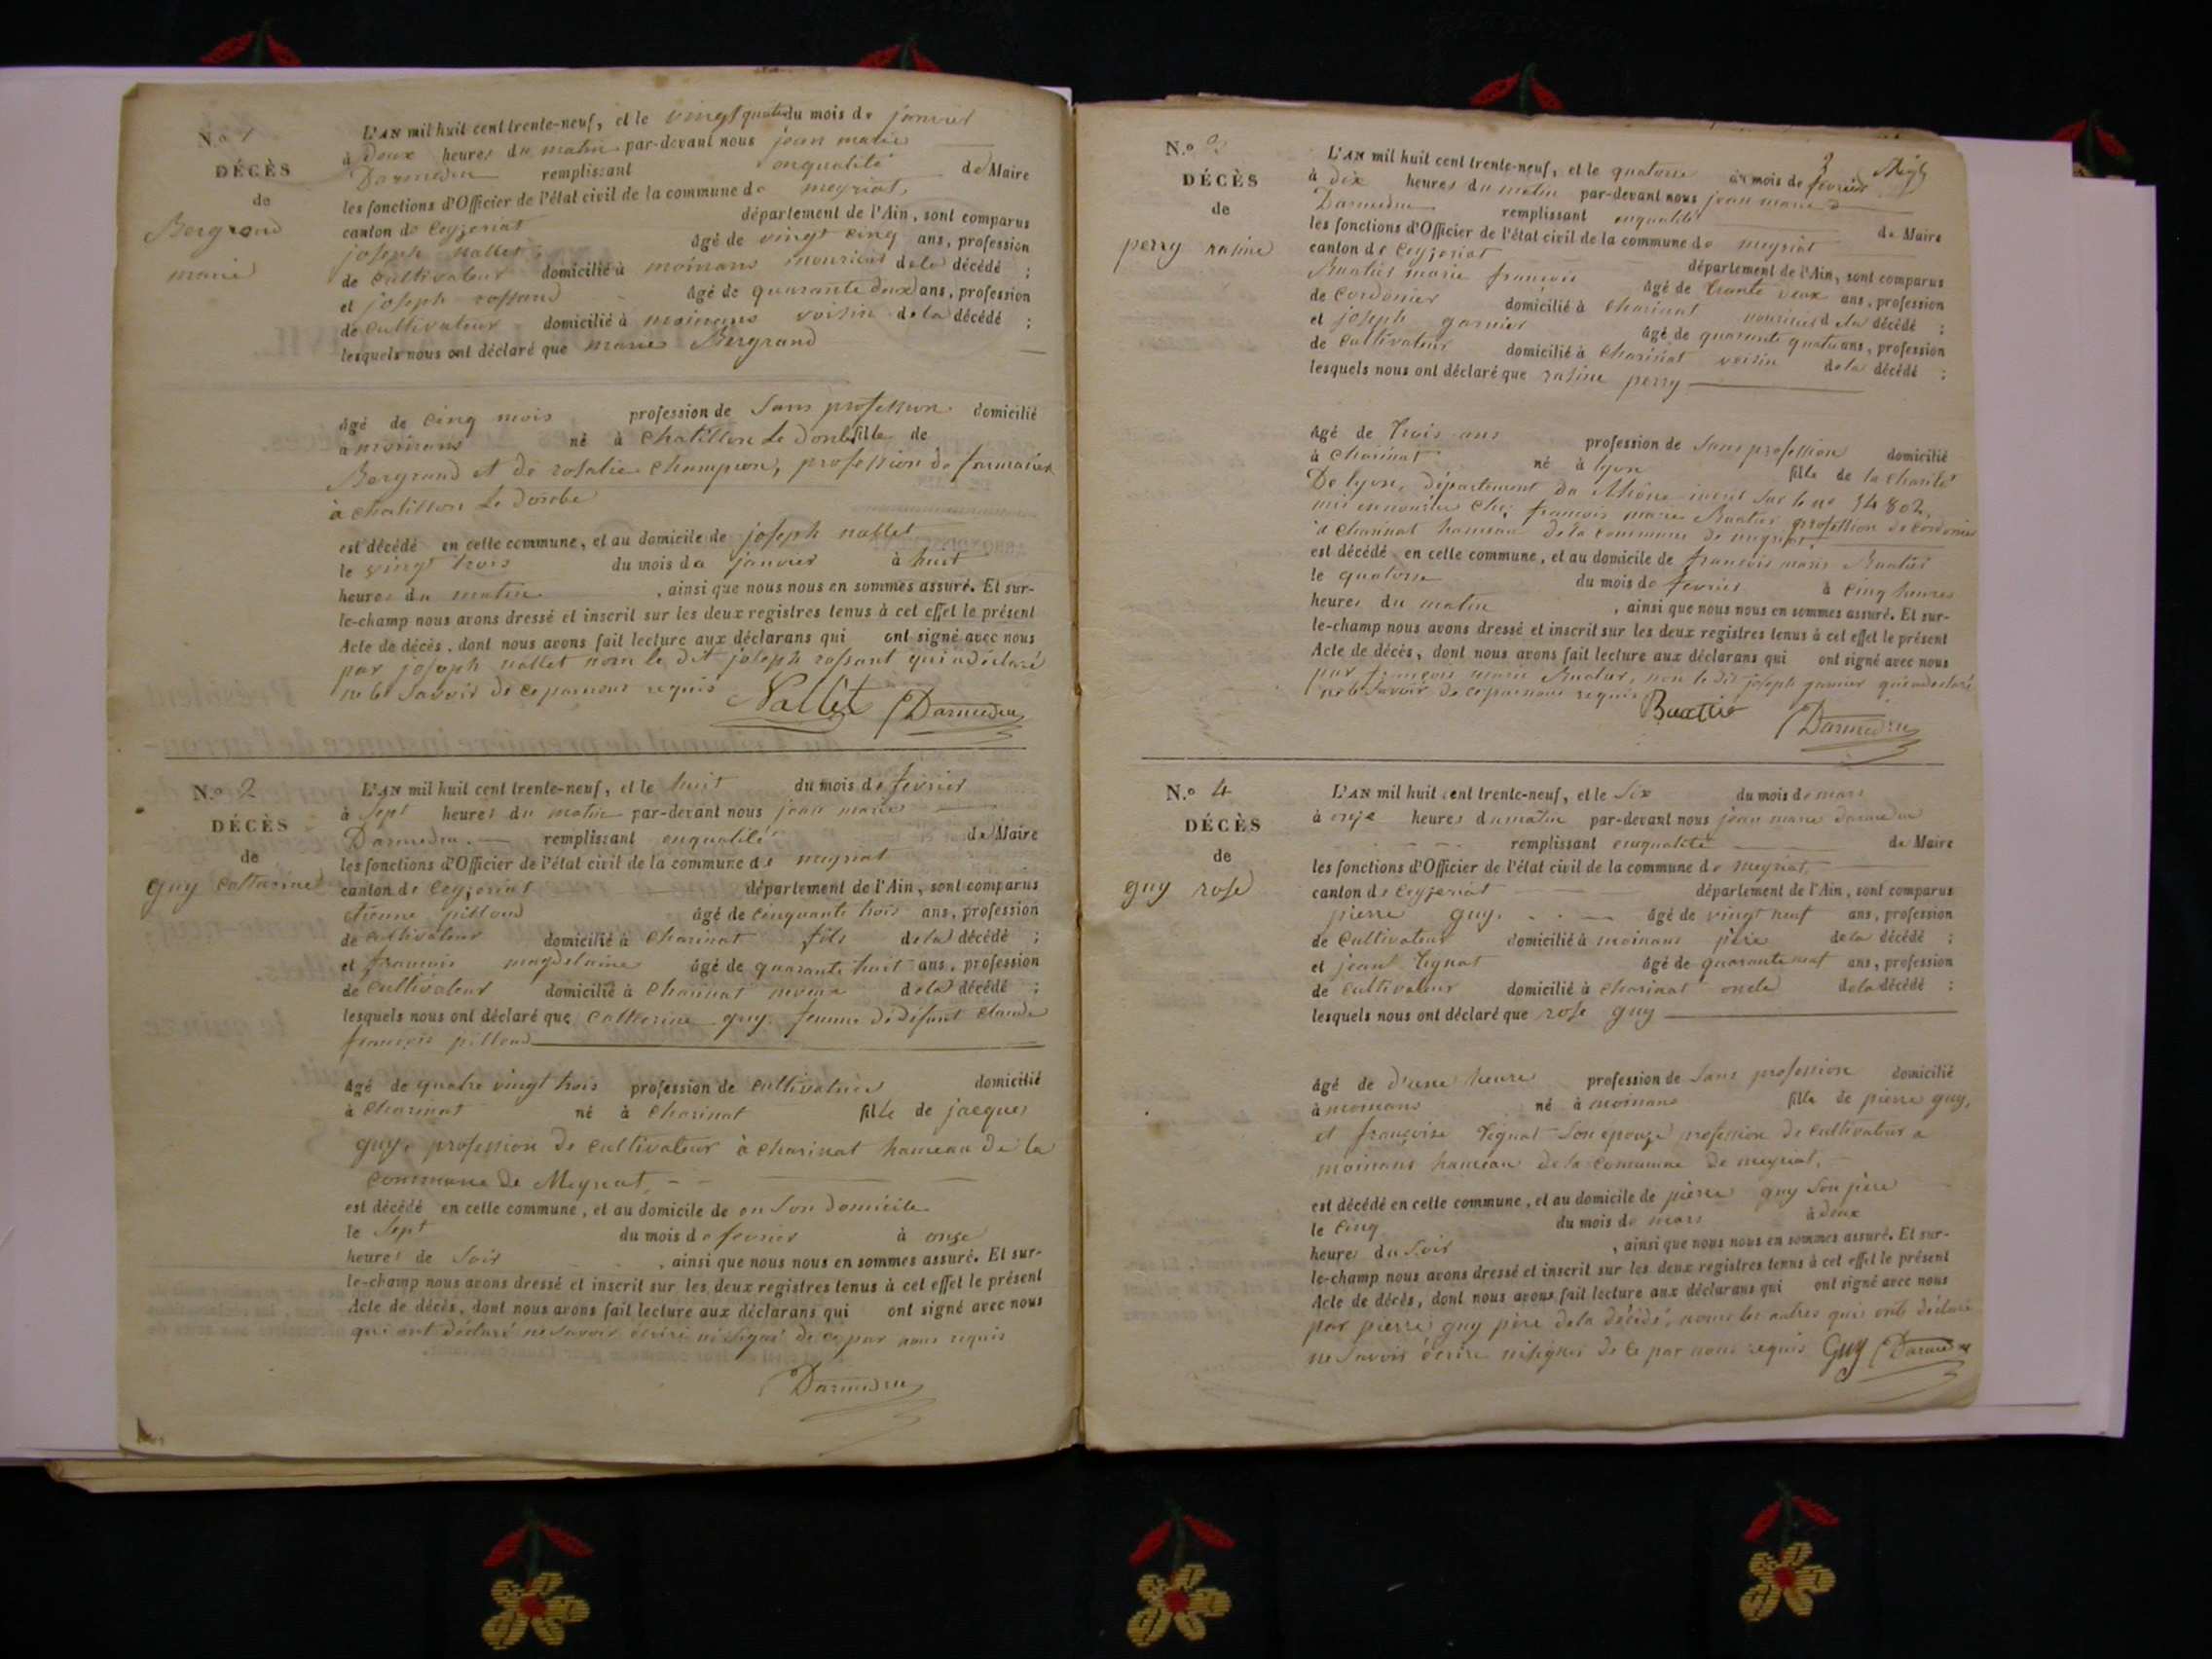 N.o 1
DÉCÈS
de
Bergrand
marie
L'AN mil huit cent trente-neuf, et le vingt quatre du mois de janvier
à deux heures du matin par-devant nous jean marie
Darmedru remplissant enqualité de Maire
les fonctions d'Officier de l'état civil de la commune de meyriat
canton de Ceyzeriat département de l'Ain, sont comparus
joseph Nallet âgé de vingt cinq ans, profession
de cultivateur domicilié à moinans nouricier de la décédé ;
et joseph rossand âgé de quarante deux ans, profession
de cultivateur domicilié à moinans voisin de la décédé ;
lesquels nous ont déclaré que marie Bergrand
âgé de cinq mois profession de sans profession domicilié
à moinans né à chatillon le dombe fille de
Bergrand et de rosalie champion, profession de
à chatillon le dombe
est décédé en cette commune, et au domicile de joseph nallet
le vingt trois du mois de janvier à huit
heures du matin, ainsi que nous nous en sommes assuré. Et sur-
le-champ nous avons dressé et inscrit sur les deux registres tenus à cet effet le présent
Acte de décès, dont nous avons fait lecture aux déclarans qui ont signé avec nous
par joseph nallet non le dit joseph rossant qui a déclaré
ne le savoir de ce par nous requis Nallet Darmedru
N.o 2
DÉCÈS
de
guy catterine
L'AN mil huit cent trente-neuf, et le huit du mois de fevrier
à sept heures du matin par-devant nous jean marie
Darmedru remplissant enqualité de Maire
les fonctions d'Officier de l'état civil de la commune de meyriat
canton de Ceyzeriat département de l'Ain, sont comparus
etienne pilloud âgé de cinquante trois ans, profession
de cultivateur domicilié à charinat fils de la décédé ;
et francois magdelaine âgé de quarante huit ans, profession
de cultivateur domicilié à charinat neveu de la décédé ;
lesquels nous ont déclaré que catterine guy femme de défunt claude
francois pilloud
âgé de quatre vingt trois profession de cultivatrice domicilié
à charinat né à charinat fille de jacques
guy, profession de cultivateur à charinat hameau de la
commune de Meyriat
est décédé en cette commune, et au domicile de en son domicile
le sept du mois de fevrier à onze
heures de soir, ainsi que nous nous en sommes assuré. Et sur-
le-champ nous avons dressé et inscrit sur les deux registres tenus à cet effet le présent
Acte de décès, dont nous avons fait lecture aux déclarans qui ont signé avec nous
qui ont déclaré ne savoir écrire ni signer de ce par nous requis
Darmedru
3
N.o 3
DÉCÈS
de
perry rasine
L'AN mil huit cent trente-neuf, et le quatorse du mois de fevrier
à dix heures du matin par-devant nous jean marie
Darmedru remplissant enqualité de Maire
les fonctions d'Officier de l'état civil de la commune de meyriat
canton de Ceyzeriat département de l'Ain, sont comparus
Buatier marie francois âgé de trante deux ans, profession
de cordonier domicilié à charinat nouricier de la décédé ;
et joseph garnier âgé de quarante quatre ans, profession
de cultivateur domicilié à charinat voisin de la décédé ;
lesquels nous ont déclaré que rasine perry
âgé de trois ans profession de sans profession domicilié
à charinat né à lyon fille de la charité
De lyon, département du Rhône inscrit sur le no 54802,
mis en nourice chez francois marie Buatier profession de cordonier
à charinat hameau de la commune de meyriat
est décédé en cette commune, et au domicile de francois marie Buatier
le quatorse du mois de fevrier à cinq heures
heures du matin, ainsi que nous nous en sommes assuré. Et sur-
le-champ nous avons dressé et inscrit sur les deux registres tenus à cet effet le présent
Acte de décès, dont nous avons fait lecture aux déclarans qui ont signé avec nous
par francois marie Buatier, non le dit joseph garnier qui a déclaré
ne le savoir de ce par nous requis Buattier Darmedru
N.o 4
DÉCÈS
de
guy rose
L'AN mil huit cent trente-neuf, et le six du mois de mars
à onze heures du matin par-devant nous jean marie darmedru
remplissant enqualité de Maire
les fonctions d'Officier de l'état civil de la commune de meyriat
canton de Ceyzeriat département de l'Ain, sont comparus
pierre guy âgé de vingt neuf ans, profession
de cultivateur domicilié à moinans père de la décédé ;
et jean tignat âgé de quarante neuf ans, profession
de cultivateur domicilié à charinat oncle de la décédé ;
lesquels nous ont déclaré que rose guy
âgé de d'une heure profession de sans profession domicilié
à moinans né à moinans fille de pierre guy,
et françoise tignat son epouze profession de cultivateur a
moinans hameau de la commune de meyriat,
est décédé en cette commune, et au domicile de pierre guy son père
le cinq du mois de mars à deux
heures du soir, ainsi que nous nous en sommes assuré. Et sur-
le-champ nous avons dressé et inscrit sur les deux registres tenus à cet effet le présent
Acte de décès, dont nous avons fait lecture aux déclarans qui ont signé avec nous
par pierre guy père de la décédé, nons les autres qui onts déclaré
ne savoir écrire ni signer de ce par nous requis Guy Darmedru